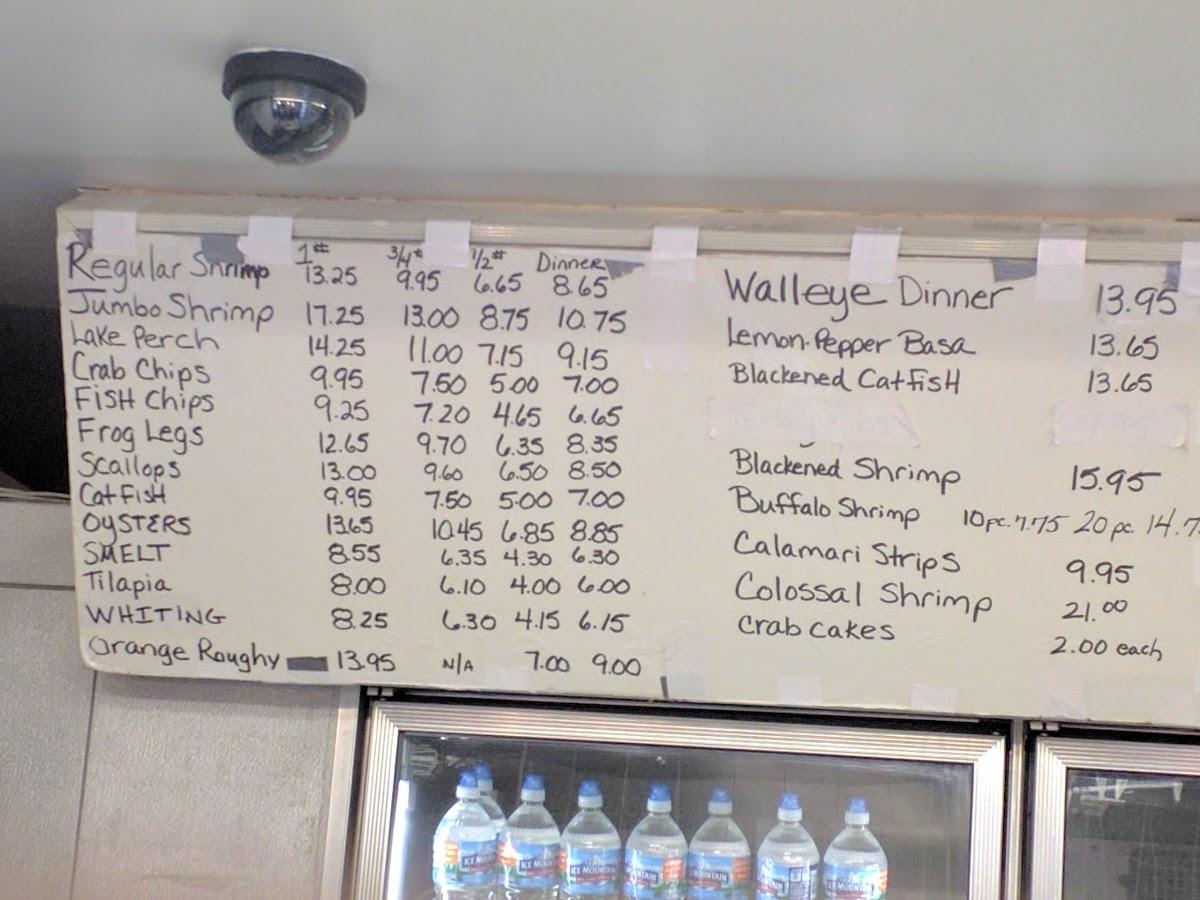 1# 3/4# 1/2# Dinner
Regular Shrimp 13.25 9.95 6.65 8.65
Jumbo Shrimp 17.25 13.00 8.75 10.75
Lake Perch 14.25 11.00 7.15 9.15
Crab Chips 9.95 7.50 5.00 7.00
FISH Chips 9.25 7.20 4.65 6.65
Frog Legs 12.65 9.70 6.35 8.35
Scallops 13.00 9.60 6.50 8.50
CatFisH 9.95 7.50 5.00 7.00
OYSTERS 13.65 10.45 6.85 8.85
SMELT 8.55 6.35 4.30 6.30
Tilapia 8.00 6.10 4.00 6.00
WHITING 8.25 6.30 4.15 6.15
Orange Roughy 13.95 N/A 7.00 9.00
Walleye Dinner 13.95
Lemon-Pepper Basa 13.65
Blackened CatFisH 13.65
Blackened Shrimp 15.95
Buffalo Shrimp 10pc. 7.75 20 pc. 14.7
Calamari Strips 9.95
Colossal Shrimp 21.00
Crab cakes 2.00 each
ICE MOUNTAIN
ICE MOUNTAIN
ICE MOUNTAIN
MOUNTAIN
MOUNTAIN
MOUNTAIN
ICE MOUNTAIN